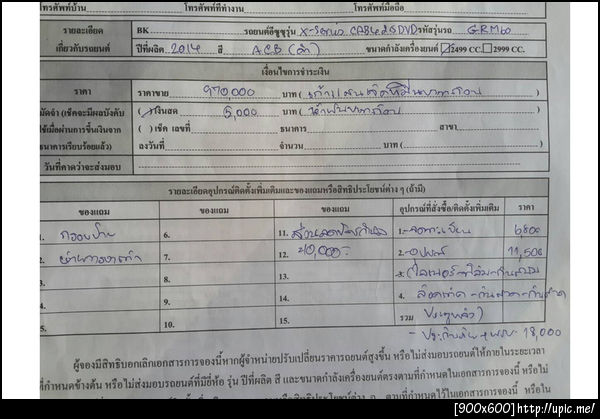 โทรศัพท์บ้าน โทรศัพท์ที่ทำงาน โทรศัพท์มือถือ
รายละเอียด BK รถยนต์อีซูซุรุ่น X-Series CAB4 2.5 DVD รหัสรุ่นรถ GRM60
เกี่ยวกับรถยนต์ ปีที่ผลิต 2014 สี A.C.B (ดำ) ขนาดกำลังเครื่องยนต์ 2499 CC. 2999 CC.
เงื่อนไขการชำระเงิน
ราคา ราคาขาย 970,000 บาท ( เก้าแสนเจ็ดหมื่นบาทถ้วน )
มัดจำ (เช็คจะมีผลบังคับ ( / )เงินสด 5,000 บาท ( ห้าพันบาทถ้วน )
ใช้เมื่อผ่านการขึ้นเงินจาก ( ) เช็ค เลขที่ ธนาคาร สาขา
ธนาคารเรียบร้อยแล้ว) ลงวันที่ จำนวน บาท ( )
วันที่คาดว่าจะส่งมอบ
รายละเอียดอุปกรณ์ติดตั้งเพิ่มเติมและของแถมหรือสิทธิประโยชน์ต่าง ๆ (ถ้ามี)
ของแถม ของแถม ของแถม อุปกรณ์ที่สั่งซื้อ/ติดตั้งเพิ่มเติม ราคา
1. กรอบป้าย 6. 11. 1. 6,800
2. 7. 12. 40,000.- 2. 11,500
3. 8. 13. 3.
4. 9. 14. 4.
5. 10. 15. รวม
18,000
ผู้จองมีสิทธิบอกเลิกเอกสารการจองนี้หากผู้จำหน่ายปรับเปลี่ยนราคารถยนต์สูงขึ้น หรือไม่ส่งมอบรถยนต์ให้ภายในระยะเวลา
ที่กำหนดข้างต้น หรือไม่ส่งมอบรถยนต์ที่มียี่ห้อ รุ่น ปีที่ผลิต สี และขนาดกำลังเครื่องยนต์ตรงตามที่กำหนดในเอกสารการจองนี้ หรือไม่
ตามที่กำหนดไว้ในเอกสารการจองนี้ หรือใน
[900x600] http://upic.me/